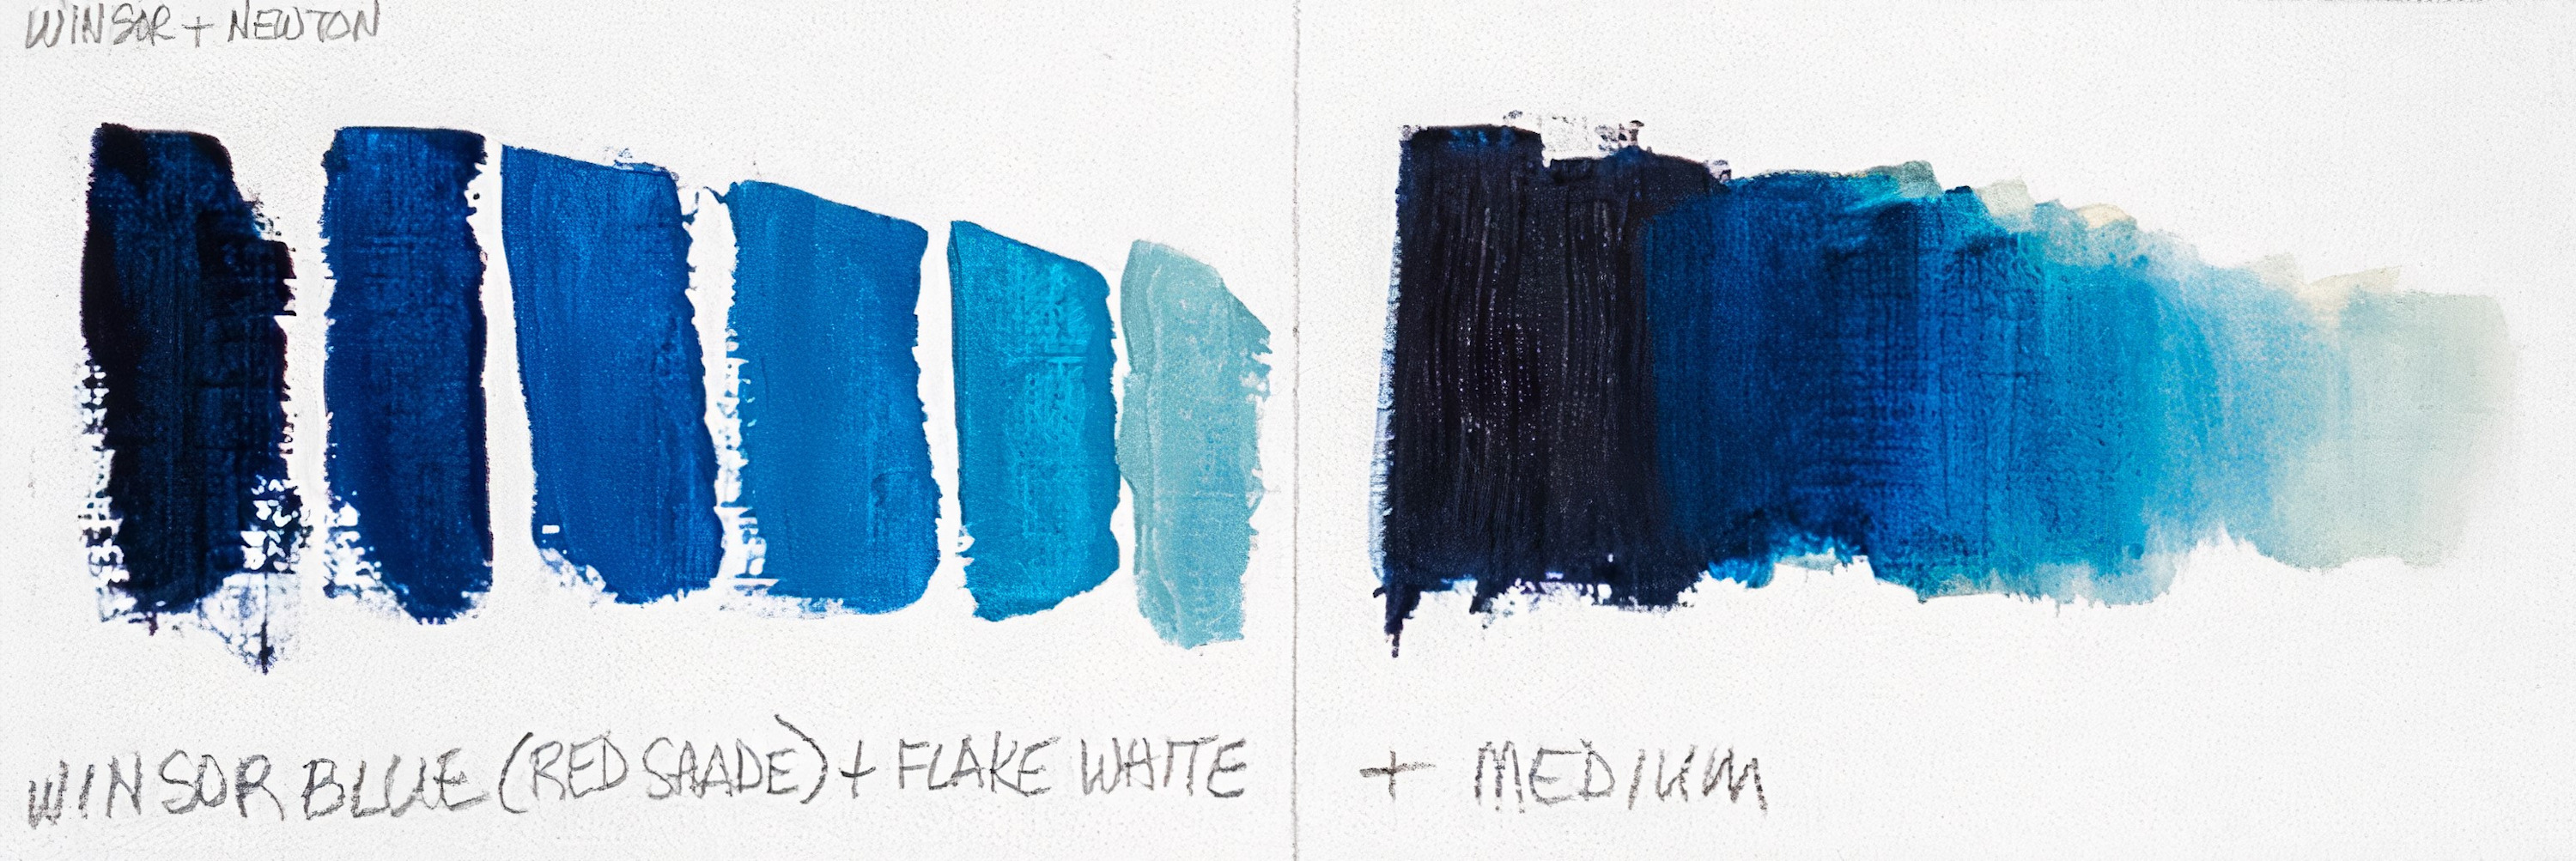 WINSOR + NEWTON
WINSOR BLUE (RED SHADE) + FLAKE WHITE
+ MEDIUM